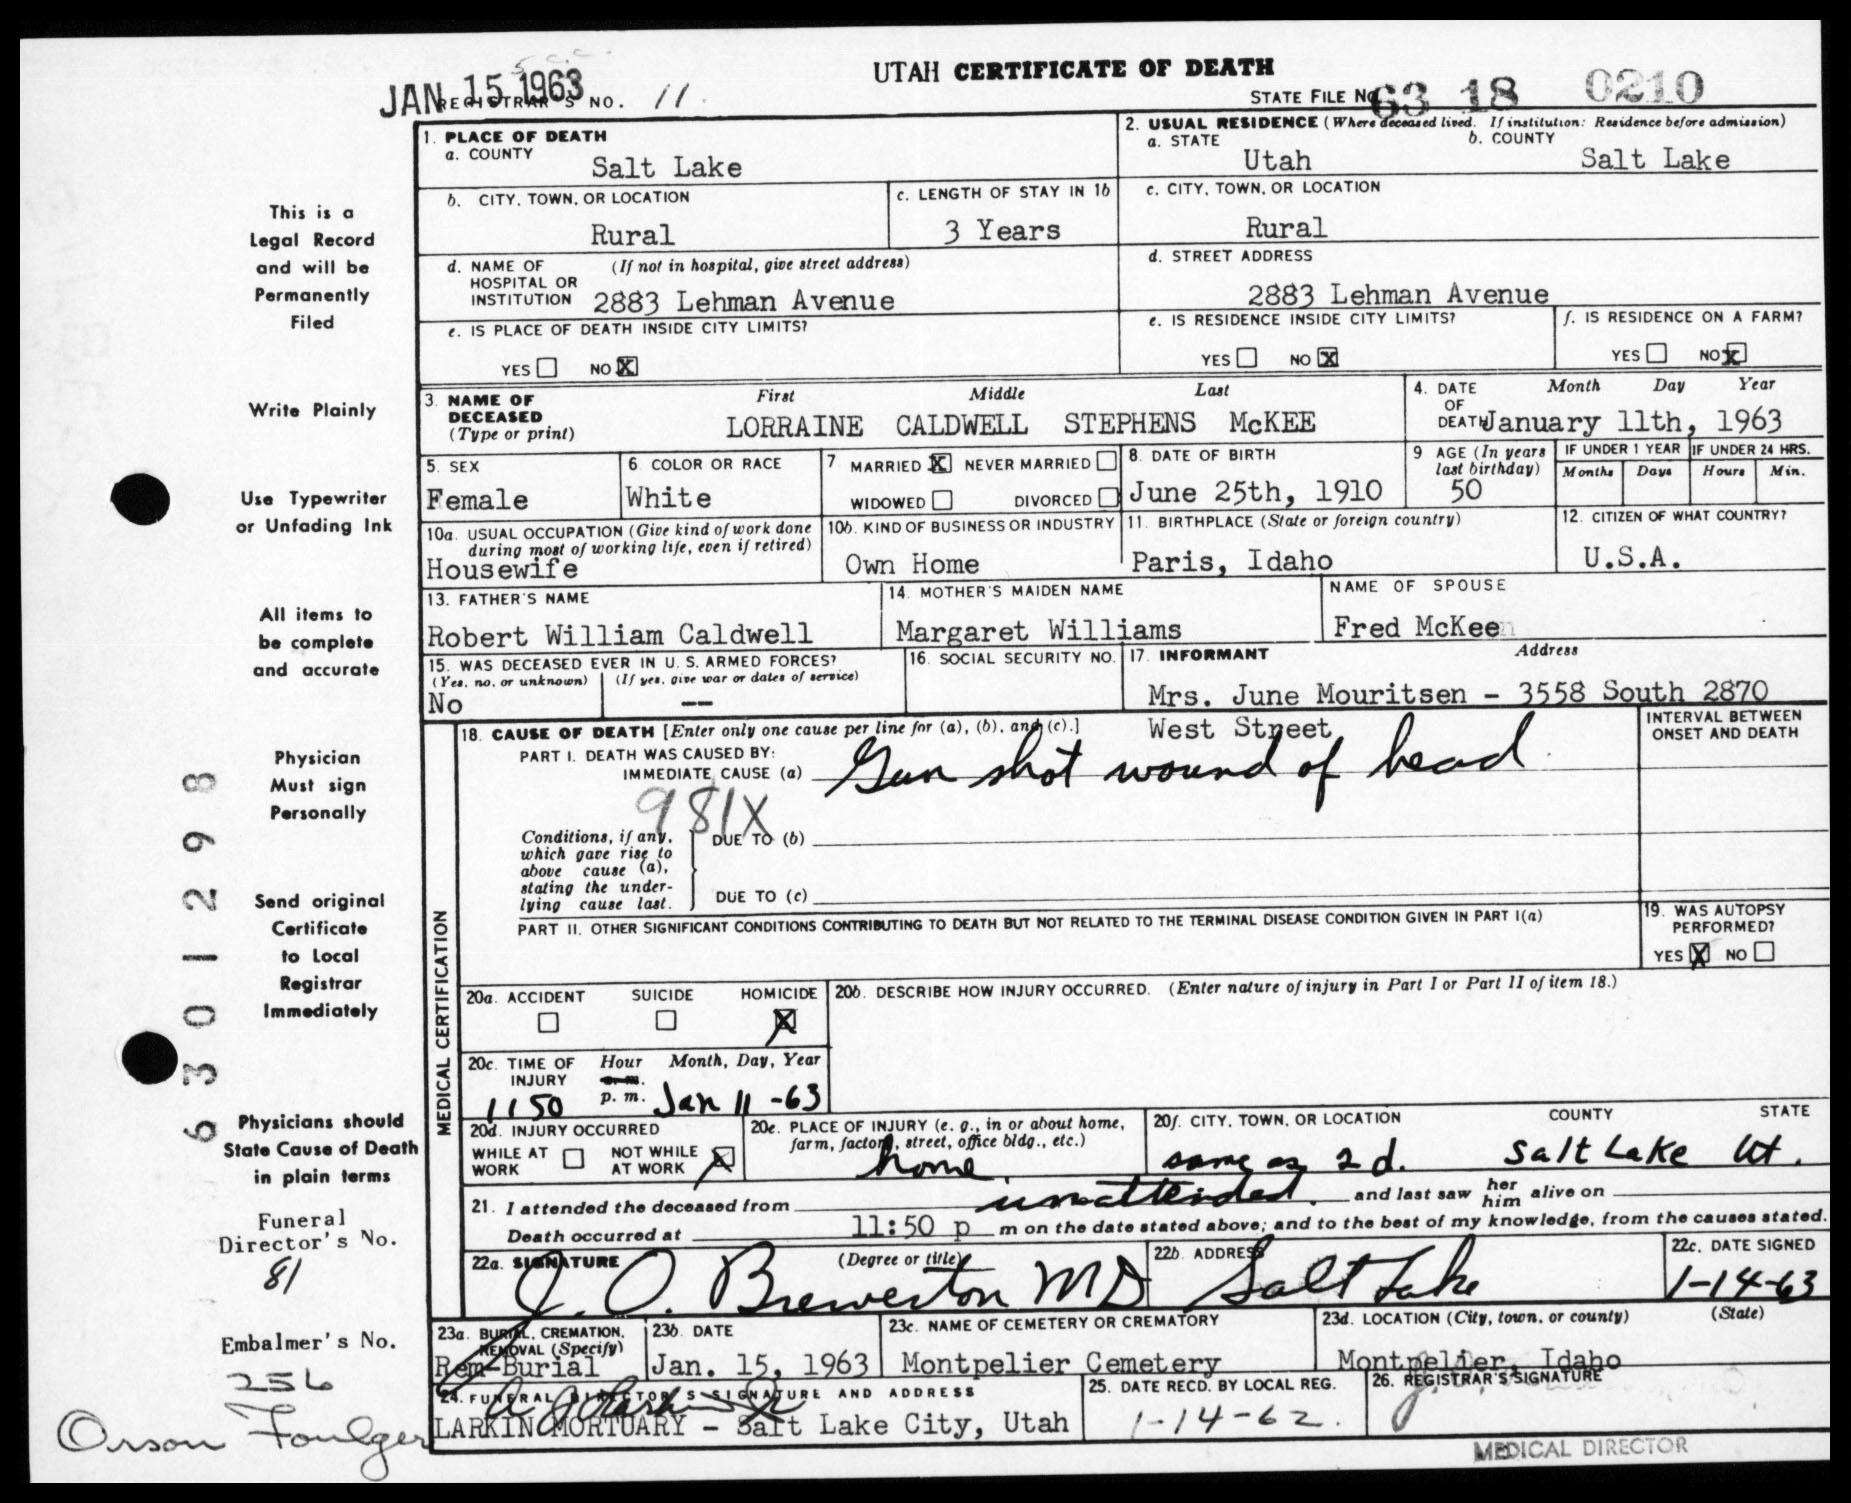 JAN 15 1963
UTAH CERTIFICATE OF DEATH
REGISTRAR'S NO. 11.
STATE FILE NO. 63 18 0210
1. PLACE OF DEATH
a. COUNTY
Salt Lake
2. USUAL RESIDENCE (Where deceased lived. If institution: Residence before admission)
a. STATE b. COUNTY
Utah Salt Lake
b. CITY, TOWN, OR LOCATION
Rural
c. LENGTH OF STAY IN 1b
3 Years
c. CITY, TOWN, OR LOCATION
Rural
d. NAME OF (If not in hospital, give street address)
HOSPITAL OR
INSTITUTION 2883 Lehman Avenue
d. STREET ADDRESS
2883 Lehman Avenue
e. IS PLACE OF DEATH INSIDE CITY LIMITS?
YES NO X
e. IS RESIDENCE INSIDE CITY LIMITS?
YES NO X
f. IS RESIDENCE ON A FARM?
YES NO X
3. NAME OF First Middle Last
DECEASED
(Type or print) LORRAINE CALDWELL STEPHENS McKEE
4. DATE Month Day Year
OF
DEATH January 11th, 1963
5. SEX
Female
6. COLOR OR RACE
White
7. MARRIED X NEVER MARRIED
WIDOWED DIVORCED
8. DATE OF BIRTH
June 25th, 1910
9 AGE (In years
last birthday)
50
IF UNDER 1 YEAR IF UNDER 24 HRS.
Months Days Hours Min.
10a. USUAL OCCUPATION (Give kind of work done
during most of working life, even if retired)
Housewife
10b. KIND OF BUSINESS OR INDUSTRY
Own Home
11. BIRTHPLACE (State or foreign country)
Paris, Idaho
12. CITIZEN OF WHAT COUNTRY?
U.S.A.
13. FATHER'S NAME
Robert William Caldwell
14. MOTHER'S MAIDEN NAME
Margaret Williams
NAME OF SPOUSE
Fred McKee
15. WAS DECEASED EVER IN U.S. ARMED FORCES?
(Yes, no, or unknown) (If yes, give war or dates of service)
No --
16. SOCIAL SECURITY NO.
17. INFORMANT Address
Mrs. June Mouritsen - 3558 South 2870
West Street
18. CAUSE OF DEATH [Enter only one cause per line for (a), (b), and (c).]
INTERVAL BETWEEN
ONSET AND DEATH
PART I. DEATH WAS CAUSED BY:
IMMEDIATE CAUSE (a) Gun shot wound of head
981X
Conditions, if any,
which gave rise to
above cause (a),
stating the under-
lying cause last.
DUE TO (b)
DUE TO (c)
PART II. OTHER SIGNIFICANT CONDITIONS CONTRIBUTING TO DEATH BUT NOT RELATED TO THE TERMINAL DISEASE CONDITION GIVEN IN PART I(a)
19. WAS AUTOPSY
PERFORMED?
YES X NO
MEDICAL CERTIFICATION
20a. ACCIDENT SUICIDE HOMICIDE
X
20b. DESCRIBE HOW INJURY OCCURRED. (Enter nature of injury in Part I or Part II of item 18.)
20c. TIME OF Hour Month, Day, Year
INJURY a.m.
1150 p.m. Jan 11 -63
20d. INJURY OCCURRED
WHILE AT
WORK
NOT WHILE
AT WORK X
20e. PLACE OF INJURY (e. g., in or about home,
farm, factory, street, office bldg., etc.)
home
20f. CITY, TOWN, OR LOCATION COUNTY STATE
same as 2d. Salt Lake Ut.
21. I attended the deceased from unattended. and last saw her him alive on
Death occurred at 11:50 p m on the date stated above; and to the best of my knowledge, from the causes stated.
22a. SIGNATURE (Degree or title)
J. O. Brewerton MD
22b. ADDRESS
Salt Lake
22c. DATE SIGNED
1-14-63
23a. BURIAL, CREMATION,
REMOVAL (Specify)
Rem-Burial
23b. DATE
Jan. 15, 1963
23c. NAME OF CEMETERY OR CREMATORY
Montpelier Cemetery
23d. LOCATION (City, town, or county) (State)
Montpelier, Idaho
24. FUNERAL DIRECTOR'S SIGNATURE AND ADDRESS
LARKIN MORTUARY - Salt Lake City, Utah
25. DATE RECD. BY LOCAL REG.
1-14-62.
26. REGISTRAR'S SIGNATURE
MEDICAL DIRECTOR
This is a
Legal Record
and will be
Permanently
Filed
Write Plainly
Use Typewriter
or Unfading Ink
All items to
be complete
and accurate
Physician
Must sign
Personally
Send original
Certificate
to Local
Registrar
Immediately
Physicians should
State Cause of Death
in plain terms
Funeral
Director's No.
81
Embalmer's No.
256
Orson Foulger
63012988